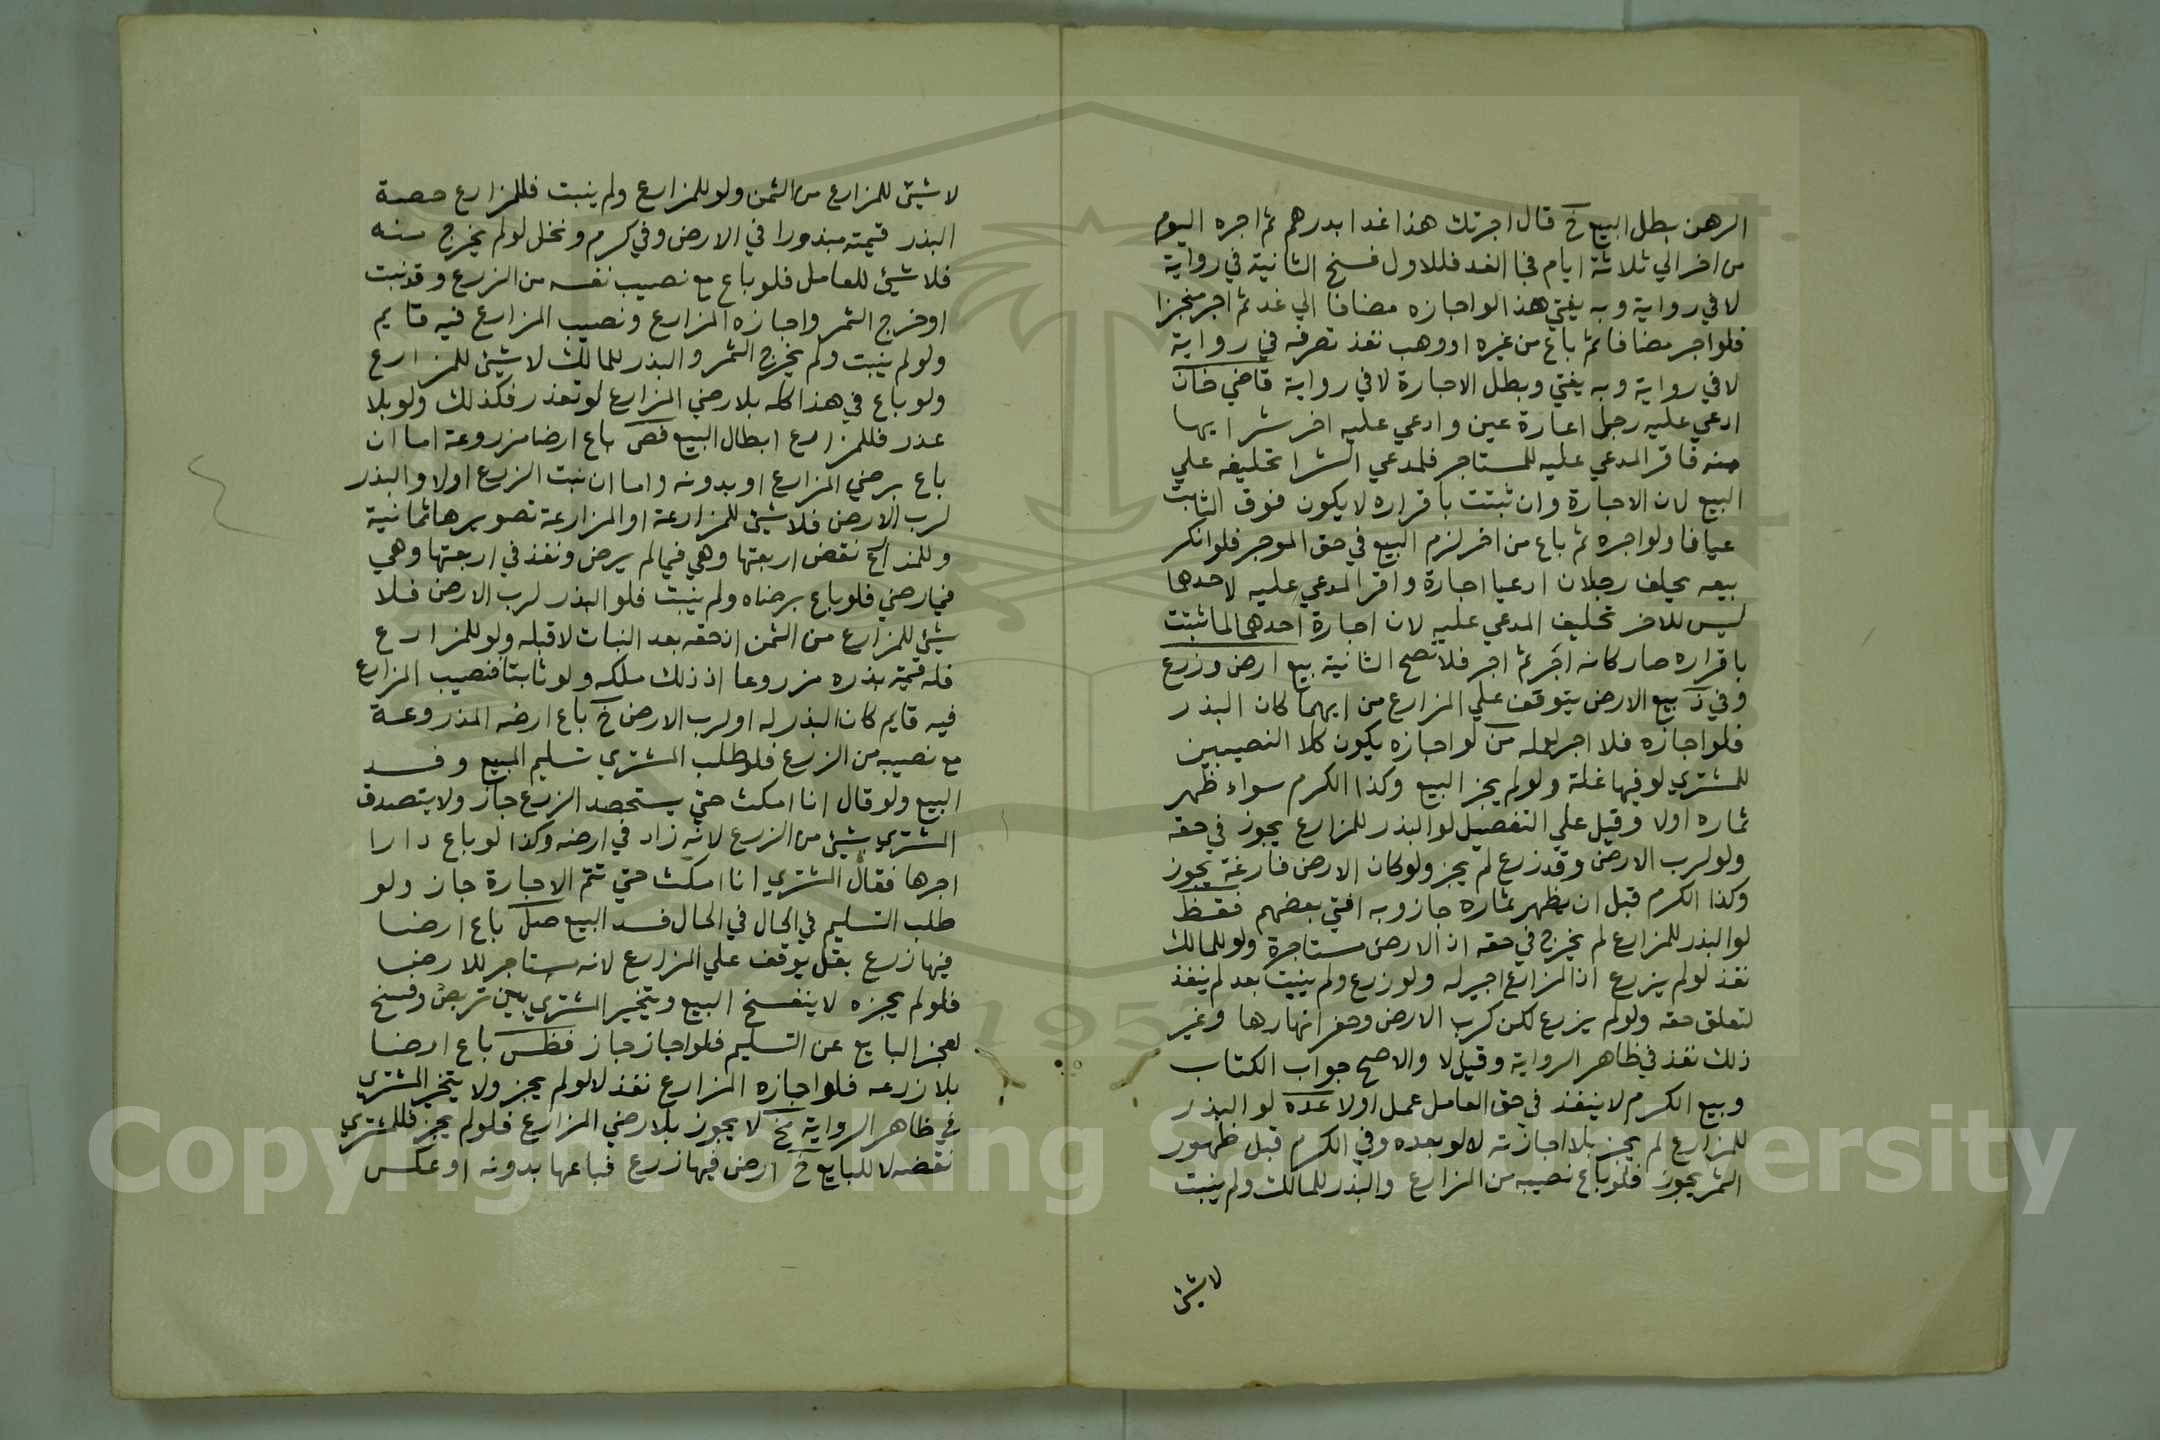 الرهن بطل البيع خ قال اجرتك هذا غدا بدرهم ثم اجره اليوم
من اخر الي ثلاثة ايام فجا الغد فللاول فسخ الثانية في رواية
لا في رواية وبه يفتي هذا لو اجازه مضافا الي غد ثم اجر منجزا
فلو اجر مضافا ثم باع من غيره او وهب نفذ تصرفه في رواية
لا في رواية وبه يفتي وبطل الاجارة لا في رواية قاضي خان
ادعي عليه رجل اعارة عين وادعي عليه اخر شرايها
منه فاقر المدعي عليه للمستاجر فلمدعي الشرا تحليفه علي
البيع لان الاجارة وان ثبتت باقراره لا يكون فوق الثابت
عيافا ولو اجره ثم باع من اخر لزم البيع في حق الموجر فلو انكر
بيعه يحلف رجلان ادعيا اجارة واقر المدعي عليه لاحدهما
ليس للاخر تحليف المدعي عليه لان اجارة احدهما لما ثبتت
باقراره صار كانه اجر ثم اجر فلا تصح الثانية بيع ارض وزرع
وفي ذ بيع الارض يتوقف علي المزارع من ايهما كان البذر
فلو اجازه فلا اجر لعمله من لو اجازه يكون كلا النصيبين
للمشتري لو فيها غلة ولو لم يجز البيع وكذا الكرم سواء ظهر
ثماره اولا وقيل علي التفصيل لو البذر للمزارع يجوز في حقه
ولو لرب الارض وقد زرع لم يجز ولو كان الارض فارغة يجوز
وكذا الكرم قبل ان يظهر ثماره جاز وبه افتي بعضهم فقظ
لو البذر للمزارع لم يخرج في حقه اذ الارض مستاجرة ولو للمالك
نفذ لو لم يزرع اذ المزارع اجير له ولو زرع ولم ينبت بعد لم ينفذ
لتعلق حقه ولو لم يزرع لكن كرب الارض وحفر انهارها وغير
ذلك نفذ في ظاهر الرواية وقيل لا والاصح جواب الكتاب
وبيع الكرم لا ينفذ في حق العامل عمل اولا عده لو البذر
للمزارع لم يجز بلا اجازته لا لو بعده وفي الكرم قبل ظهور
الثمر يجوز فلو باع نصيبه من المزارع والبذر للمالك ولم ينبت
لا شيئ
لا شيئ للمزارع من الثمن ولو للمزارع ولم ينبت فللمزارع حصة
البذر قيمته مبذورا في الارض وفي كرم ونخل لو لم يخرج منه
فلا شيئ للعامل فلو باع مع نصيب نفسه من الزرع وقد نبت
او خرج الثمر واجازه المزارع ونصيب المزارع فيه قايم
ولو لم ينبت ولم يخرج الثمر والبذر للمالك لا شيئ للمزارع
ولو باع في هذا كله بلا رضي المزارع لو تعذر فكذلك ولو بلا
عذر فللمزارع ابطال البيع فص باع ارضا مزروعة اما ان
باع برضي المزارع او بدونه واما ان نبت الزرع اولا والبذر
لرب الارض فلا شيئ للمزارعة او المزارعة تصويرها ثمانية
وللمذارع نقض اربعتها وهي فيما لم يرض ونفذ في اربعتها وهي
فيما رضي فلو باع برضاه ولم ينبت فلو البذر لرب الارض فلا
شيئ للمزارع من الثمن اذ حقه بعد النبات لا قبله ولو للمزارع
فله قيمة بذره مزروعا اذ ذلك ملكه ولو ثابتا فنصيب المزارع
فيه قايم كان البذر له او لرب الارض خ باع ارضه المذروعة
مع نصيبه من الزرع فلو طلب المشتري تسليم المبيع وفسد
البيع ولو قال انا امكث حتي يستحصد الزرع جاز ولا يتصدق
المشتري بشيئ من الزرع لانه زاد في ارضه وكذا لو باع دارا
اجرها فقال المشتري انا امكث حتي تتم الاجارة جاز ولو
طلب التسليم في الحال في الحال فسد البيع صل باع ارضا
فيها زرع بقل يوقف علي المزارع لانه مستاجر للارضا
فلو لم يجزه لا ينفسخ البيع ويتخير المشتري بين تربص وفسخ
لعجز البايع عن التسليم فلو اجاز جاز فظس باع ارضا
بلا زرعه فلو اجازه المزارع نفذ لا لو لم يجز ولا يتخير المشتري
في ظاهر الرواية مخ لا يجوز بلا رضي المزارع فلو لم يجز فللمشتري
نقضه لا للبايع خ ارض فيها زرع فباعها بدونه او عكس
Copyright © King Saud University
1957